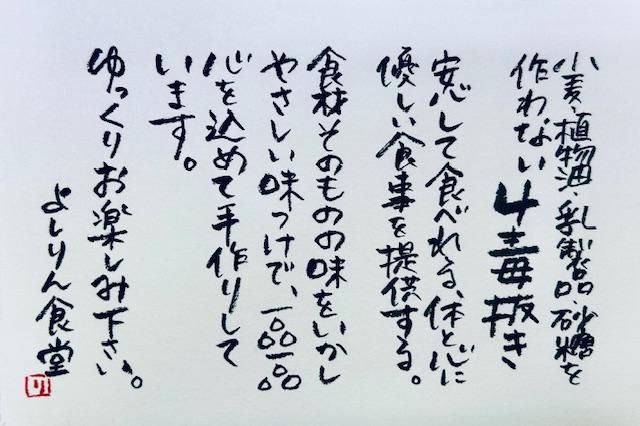 小麦・植物油・乳製品・砂糖を
作わない4毒抜き
安心して食べれる、体と心に
優しい食事を提供する。
食材そのものの味をいかし
やさしい味つけで、一品一品
心を込めて手作りして
います。
ゆっくりお楽しみ下さい。
よしりん食堂